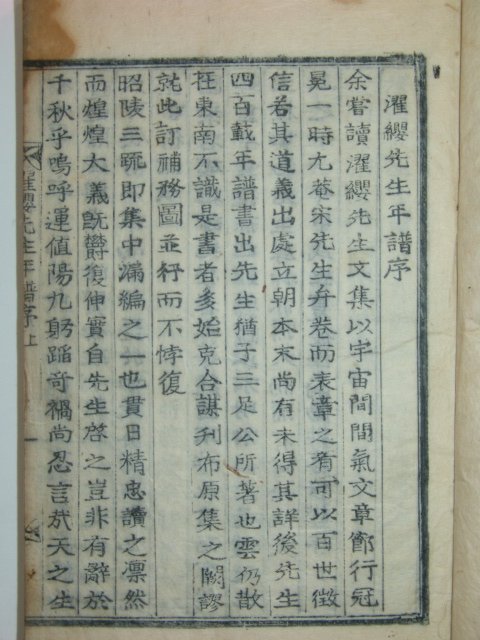 濯纓先生年譜序
余嘗讀濯纓先生文集以宇宙間間氣文章節行冠
冕一時尤菴宋先生弁卷而表章之有可以百世徵
信若其道義出處立朝本末尚有未得其詳後先生
四百載年譜書出先生猶子三足公所著也雲仍散
在東南不識是書者多始克合謀刋布原集之闕謬
就此訂補務圖並行而不悖復
昭陵三䟽即集中漏編之一也貫日精忠讀之凛然
而煌煌大義旣欝復伸實自先生啓之豈非有辭於
千秋乎嗚呼運值陽九躬蹈奇禍尚忍言㢤天之生
濯纓先生年譜序 上 一